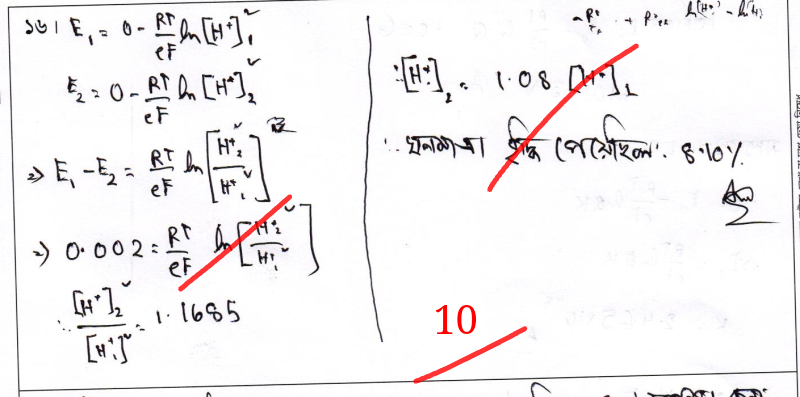 ১৬। E₁ = 0 - RT/eF ln [H⁺]₁²
E₂ = 0 - RT/eF ln [H⁺]₂²
⇒ E₁ - E₂ = RT/eF ln [H⁺₂²/H⁺₁²]
⇒ 0.002 = RT/eF ln [H⁺₂²/H⁺₁²]
∴ [H⁺]₂²/[H⁺₁]² = 1.1685
∴ [H⁺]₂ = 1.08 [H⁺]₁
∴ ঘনমাত্রা বৃদ্ধি পেয়েছিল 8.10%
Ans
10